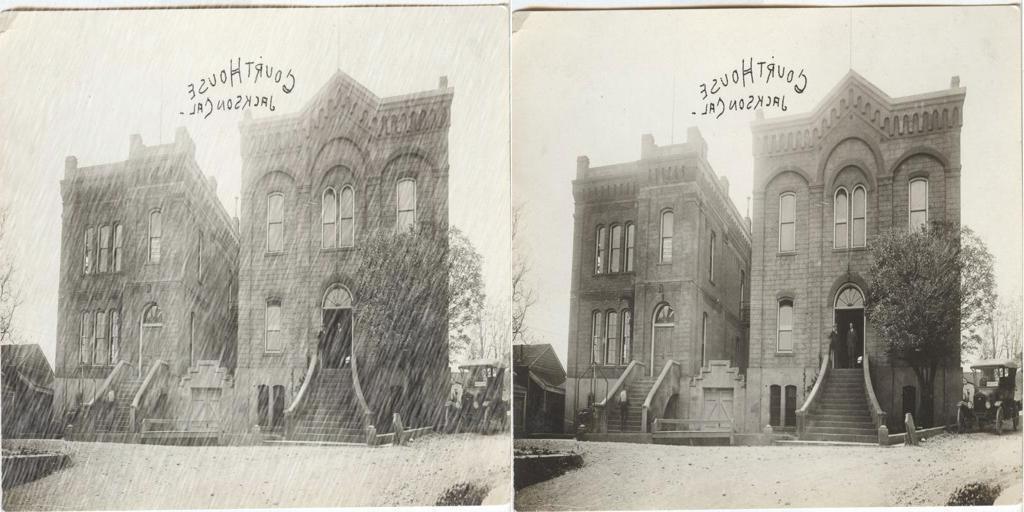 COURT HOUSE
JACKSON CAL.
COURT HOUSE
JACKSON CAL.